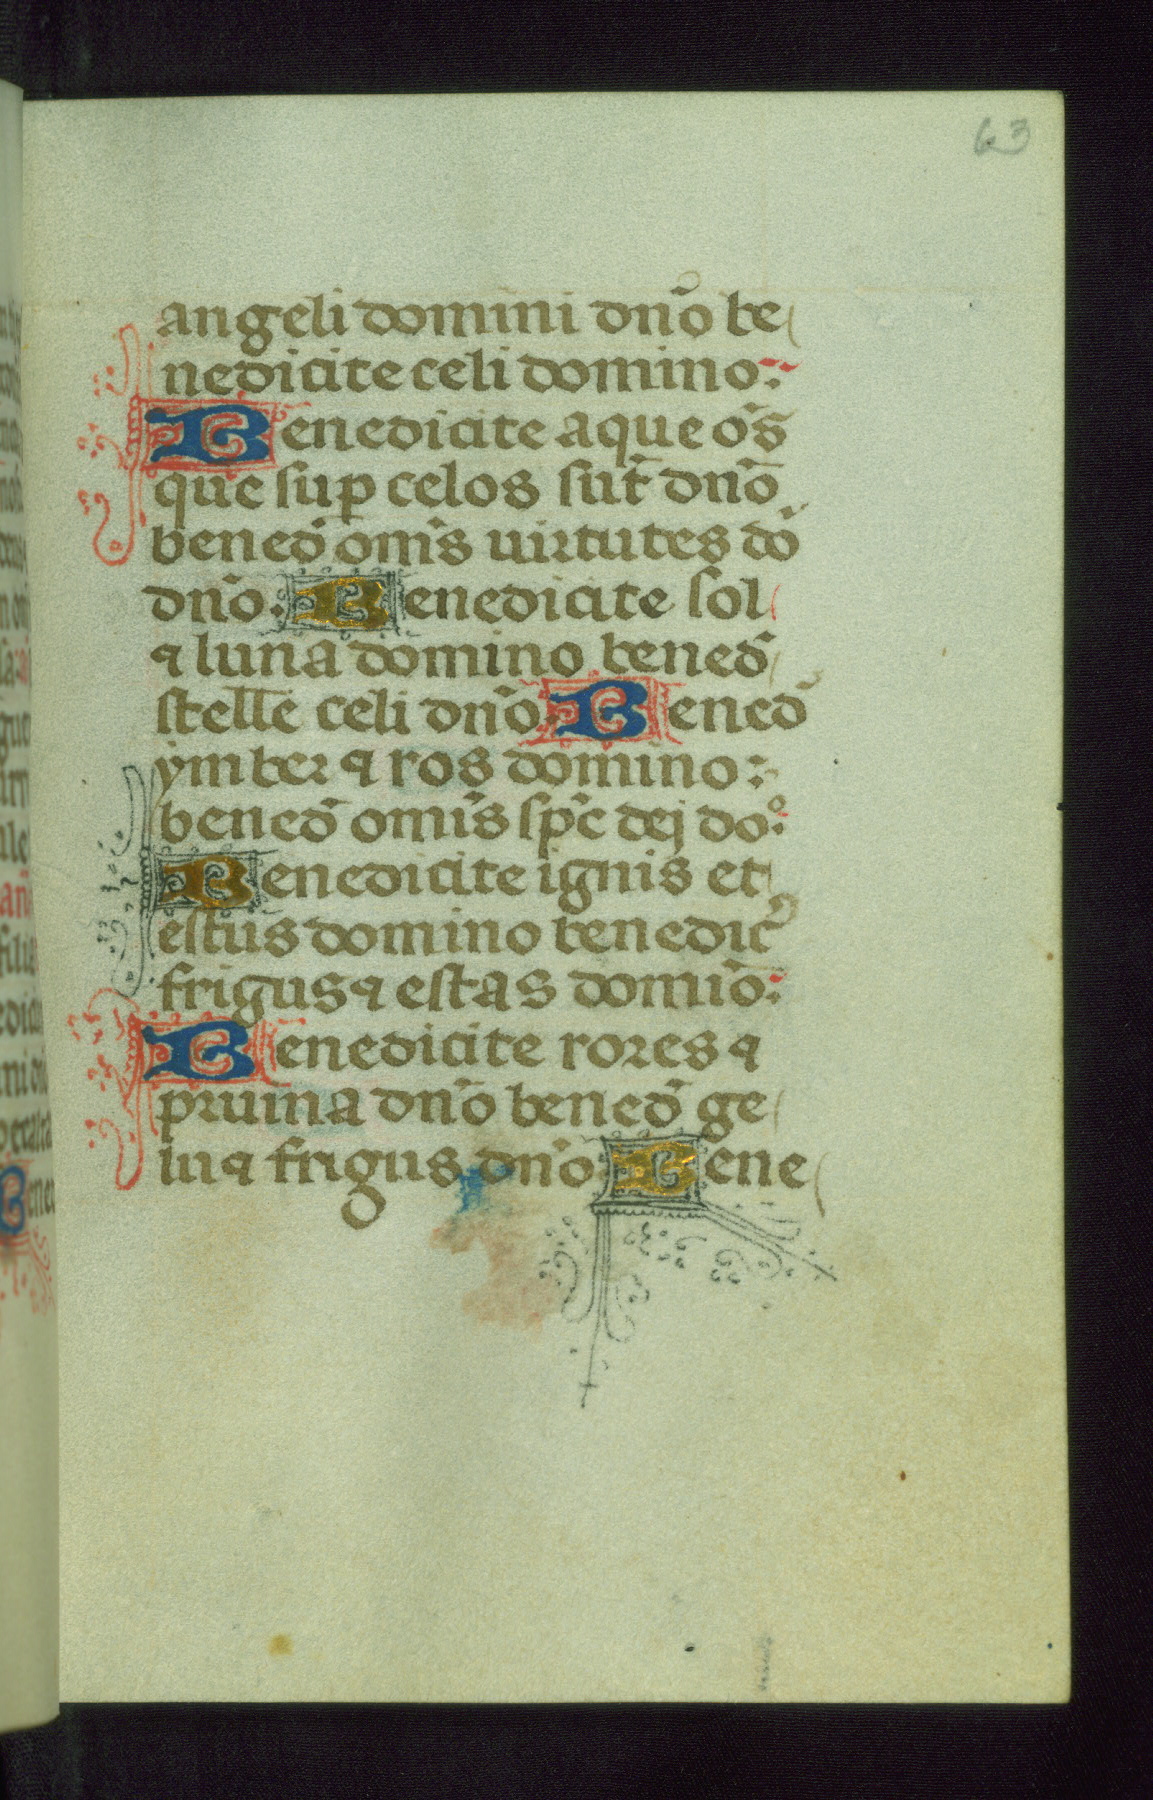 63
angeli domini dño be
nedicite celi domino:
Benedicite aque os̃
que sup celos sut̃ dnõ
bened̃ om̃s uirtutes dõ
dño. Benedicite sol
⁊ luna domino bened̃
stelle celi dño. Bened̃
ymber ⁊ ros domino:
bened̃ omĩs sp̃c dej do:
Benedicite ignis et
estus domino benedic̃
frigus ⁊ estas domiõ:
Benedicite rores ⁊
pruina dño bened̃ ge
lu ⁊ frigus dño. Bene